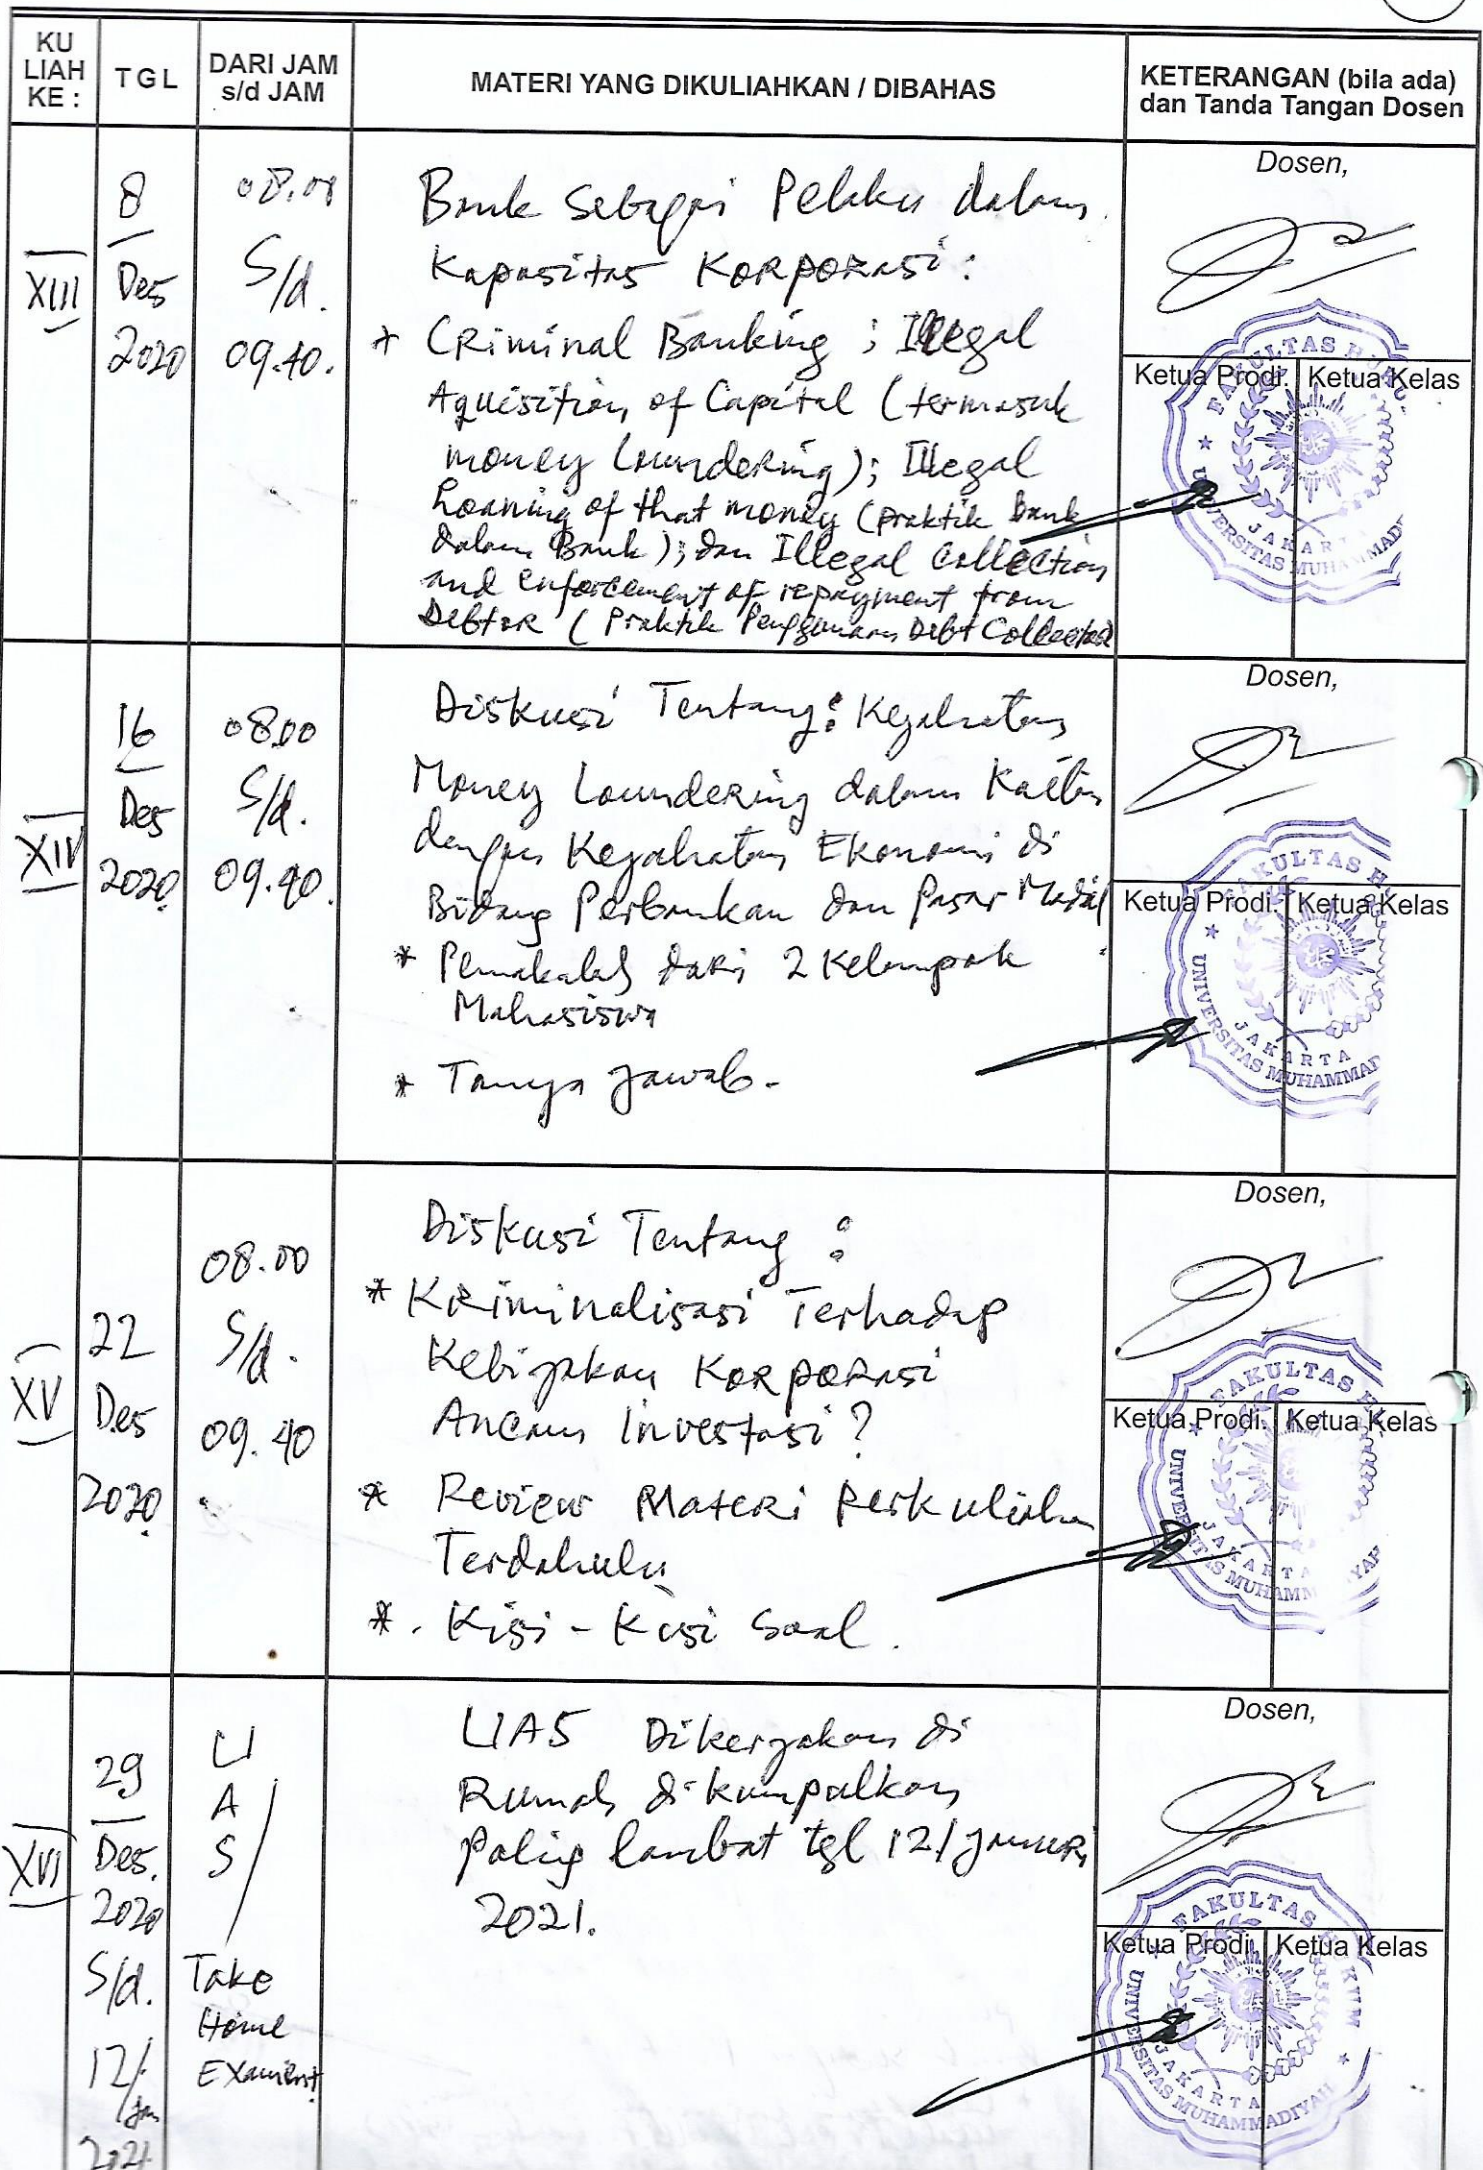 KU LIAH KE :
TGL
DARI JAM s/d JAM
MATERI YANG DIKULIAHKAN / DIBAHAS
KETERANGAN (bila ada) dan Tanda Tangan Dosen
XIII
8
Des
2020
08.00
S/d.
09.40.
Bank Sebagai Pelaku dalam
Kapasitas KORPORasi :
* CRiminal Banking ; Illegal
Aquisition of Capital (termasuk
money LoundeRing); Illegal
Loaning of that money (praktik Bank
dalam Bank); dan Illegal Collection
and enforcement of repayment from
DebtoR (Praktik Penggunaan Debt Collector
Dosen,
Ketua Prodi.
Ketua Kelas
FAKULTAS
UNIVERSITAS MUHAMMAD
JAKARTA
XIV
16
Des
2020
08.00
S/d.
09.40.
Diskusi Tentang : Kejahatan
Money LoundeRing dalam Kaitan
dengan Kejahatan Ekonomi di
Bidang Perbankan dan Pasar Modal
* Pemakalah dari 2 Kelompok
Mahasiswa
* Tanya Jawab.
Dosen,
Ketua Prodi.
Ketua Kelas
FAKULTAS H
UNIVERSITAS MUHAMMAD
JAKARTA
XV
22
Des
2020
08.00
S/d.
09.40
Diskusi Tentang :
* KRiminalisasi Terhadap
Kebijakan KORPORasi
Ancam Investasi ?
* Review MateRi Perkuliahan
Terdahulu
* . Kisi - Kisi Soal .
Dosen,
Ketua Prodi.
Ketua Kelas
FAKULTAS
JAKARTA
XVI
29
Des.
2020
S/d.
12/
Jan
2021
U
A
S/
Take
Home
UAS Dikerjakan di
Rumah dikumpulkan
Palig lambat tgl 12/JanuaRi
2021.
Dosen,
Ketua Prodi.
Ketua Kelas
FAKULTAS HUKUM
UNIVERSITAS MUHAMMADIYAH
JAKARTA